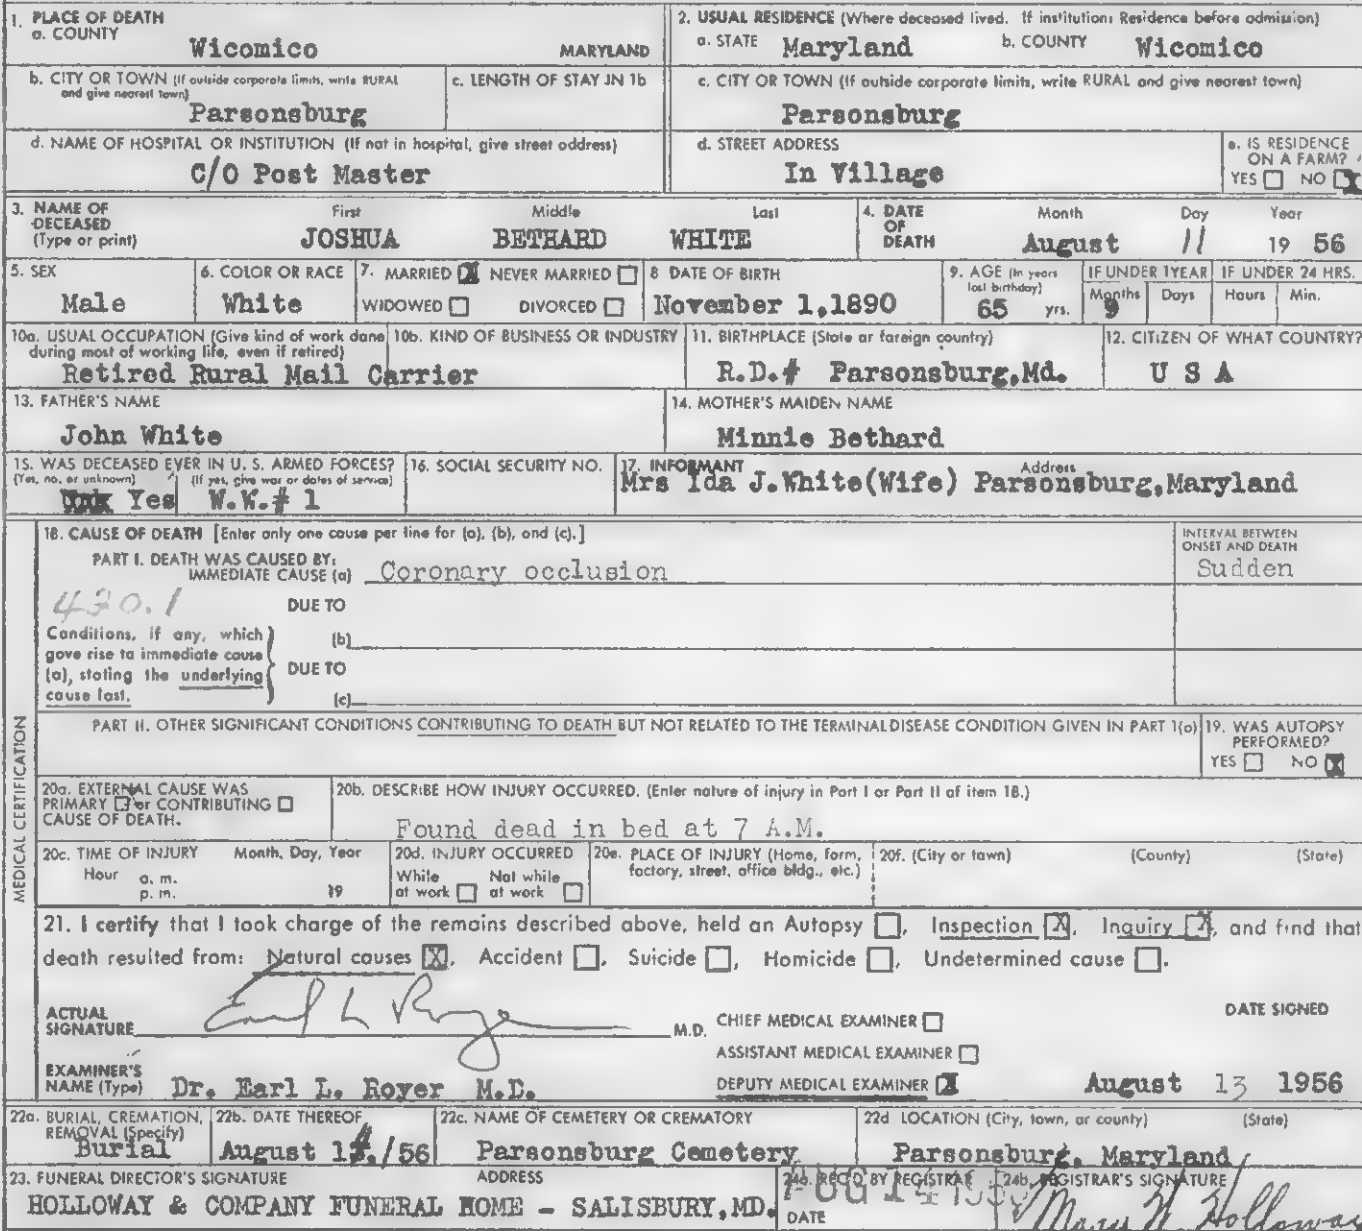 1. PLACE OF DEATH
a. COUNTY
Wicomico MARYLAND
2. USUAL RESIDENCE (Where deceased lived. If institution: Residence before admission)
a. STATE Maryland b. COUNTY Wicomico
b. CITY OR TOWN (If outside corporate limits, write RURAL and give nearest town)
Parsonsburg
c. LENGTH OF STAY IN 1b
c. CITY OR TOWN (If outside corporate limits, write RURAL and give nearest town)
Parsonsburg
d. NAME OF HOSPITAL OR INSTITUTION (If not in hospital, give street address)
C/O Post Master
d. STREET ADDRESS
In Village
e. IS RESIDENCE
ON A FARM?
YES ☐ NO ☒
3. NAME OF
DECEASED
(Type or print)
First Middle Last
JOSHUA BETHARD WHITE
4. DATE
OF
DEATH
Month Day Year
August 11 19 56
5. SEX
Male
6. COLOR OR RACE
White
7. MARRIED ☒ NEVER MARRIED ☐
WIDOWED ☐ DIVORCED ☐
8 DATE OF BIRTH
November 1,1890
9. AGE (In years
last birthday)
65 yrs.
IF UNDER 1 YEAR
Months Days
9
IF UNDER 24 HRS.
Hours Min.
10a. USUAL OCCUPATION (Give kind of work done
during most of working life, even if retired)
Retired Rural Mail Carrier
10b. KIND OF BUSINESS OR INDUSTRY
11. BIRTHPLACE (State or foreign country)
R.D.# Parsonsburg,Md.
12. CITIZEN OF WHAT COUNTRY?
U S A
13. FATHER'S NAME
John White
14. MOTHER'S MAIDEN NAME
Minnie Bethard
15. WAS DECEASED EVER IN U. S. ARMED FORCES?
(Yes, no, or unknown) (If yes, give war or dates of service)
Yes W.W.# 1
16. SOCIAL SECURITY NO.
17. INFORMANT Address
Mrs Ida J.White(Wife) Parsonsburg,Maryland
MEDICAL CERTIFICATION
18. CAUSE OF DEATH [Enter only one cause per line for (a), (b), and (c).]
INTERVAL BETWEEN
ONSET AND DEATH
PART I. DEATH WAS CAUSED BY:
IMMEDIATE CAUSE (a) Coronary occlusion
Sudden
420.1
DUE TO
Conditions, if any, which
gave rise to immediate cause
(a), stating the underlying
cause last.
(b)
DUE TO
(c)
PART II. OTHER SIGNIFICANT CONDITIONS CONTRIBUTING TO DEATH BUT NOT RELATED TO THE TERMINAL DISEASE CONDITION GIVEN IN PART 1(a)
19. WAS AUTOPSY
PERFORMED?
YES ☐ NO ☒
20a. EXTERNAL CAUSE WAS
PRIMARY ☐ or CONTRIBUTING ☐
CAUSE OF DEATH.
20b. DESCRIBE HOW INJURY OCCURRED. (Enter nature of injury in Part I or Part II of item 18.)
Found dead in bed at 7 A.M.
20c. TIME OF INJURY Month, Day, Year
Hour a. m.
p. m. 19
20d. INJURY OCCURRED
While Not while
at work ☐ at work ☐
20e. PLACE OF INJURY (Home, farm,
factory, street, office bldg., etc.)
20f. (City or town) (County) (State)
21. I certify that I took charge of the remains described above, held an Autopsy ☐, Inspection ☒, Inquiry ☒, and find that
death resulted from: Natural causes ☒, Accident ☐, Suicide ☐, Homicide ☐, Undetermined cause ☐.
ACTUAL
SIGNATURE Earl L Royer M.D.
CHIEF MEDICAL EXAMINER ☐
DATE SIGNED
ASSISTANT MEDICAL EXAMINER ☐
EXAMINER'S
NAME (Type) Dr. Earl L. Royer M.D.
DEPUTY MEDICAL EXAMINER ☒ August 13 1956
22a. BURIAL, CREMATION,
REMOVAL (Specify)
Burial
22b. DATE THEREOF
August 14./56
22c. NAME OF CEMETERY OR CREMATORY
Parsonsburg Cemetery
22d LOCATION (City, town, or county) (State)
Parsonsburg, Maryland
23. FUNERAL DIRECTOR'S SIGNATURE ADDRESS
HOLLOWAY & COMPANY FUNERAL HOME - SALISBURY,MD.
24a. REC'D BY REGISTRAR
DATE
AUG 14 1956
24b. REGISTRAR'S SIGNATURE
Mary W. Holloway